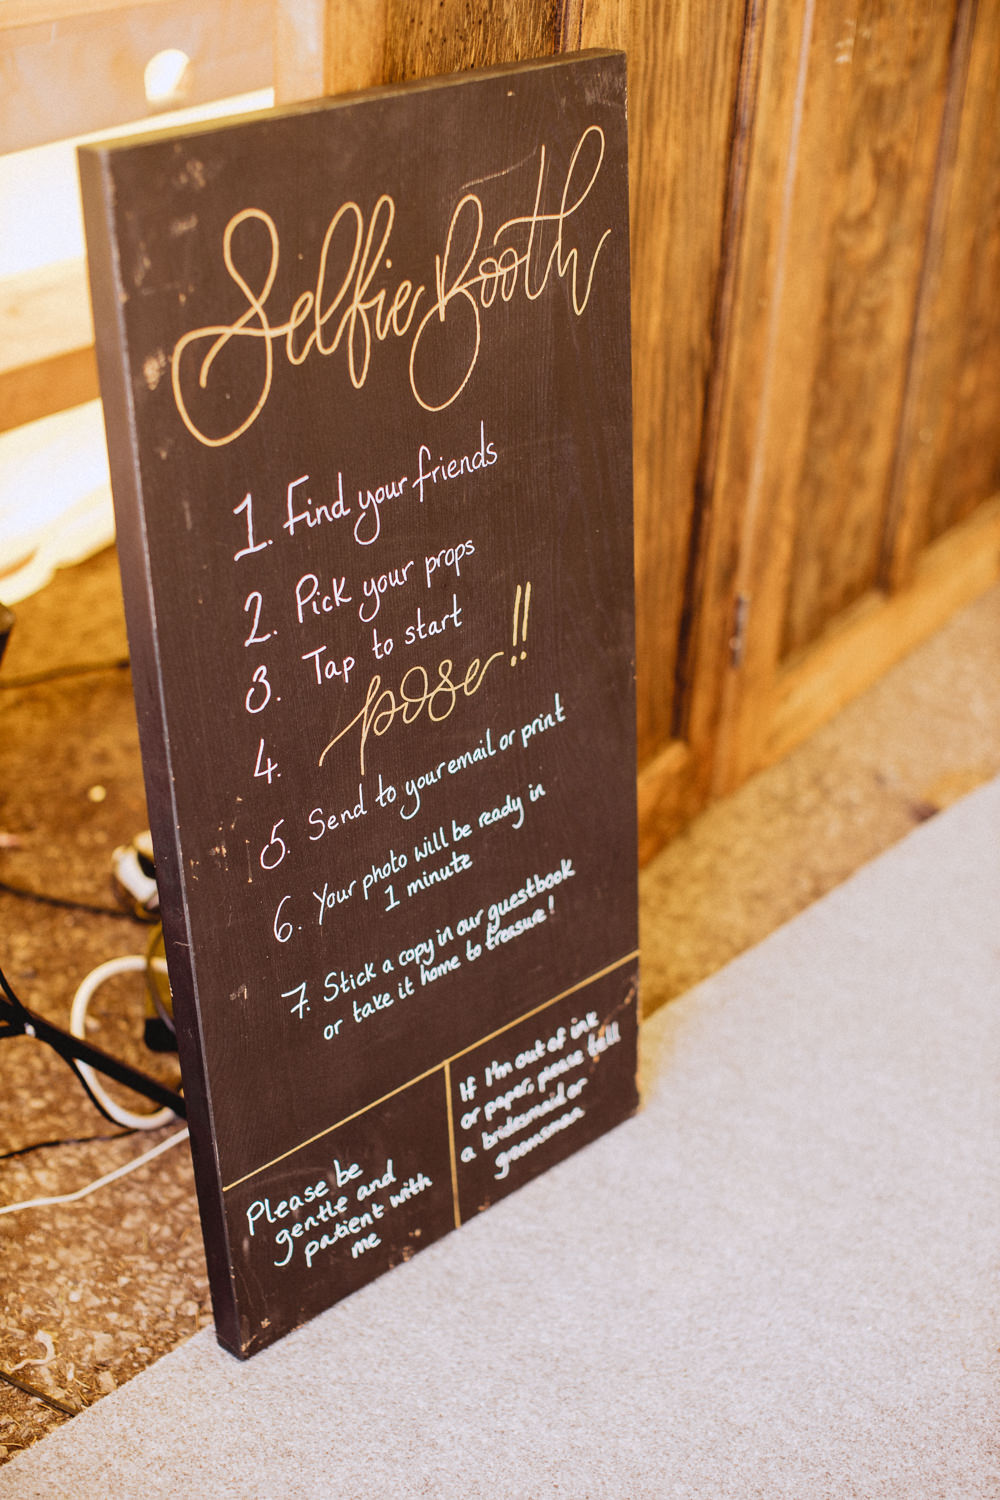 Selfie Booth
1. Find your friends
2. Pick your props
3. Tap to start
4. pose!!
5. Send to your email or print
6. Your photo will be ready in
1 minute
7. Stick a copy in our guestbook
or take it home to treasure!
Please be
gentle and
patient with
me
If I'm out of ink
or paper, please tell
a bridesmaid or
groomsman